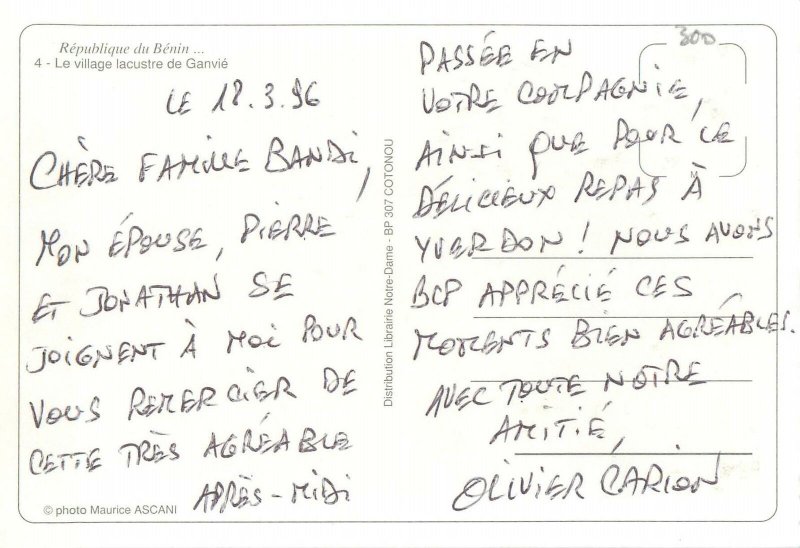 République du Bénin ...
4 - Le village lacustre de Ganvié
LE 18.3.96
CHÈRE FAMILLE BANDI,
MON ÉPOUSE, PIERRE
ET JONATHAN SE
JOIGNENT À MOI POUR
VOUS REMERCIER DE
CETTE TRÈS AGRÉABLE
APRÈS-MIDI
© photo Maurice ASCANI
Distribution Librairie Notre-Dame - BP 307 COTONOU
300
PASSÉE EN
VOTRE COMPAGNIE,
AINSI QUE POUR LE
DÉLICIEUX REPAS À
YVERDON ! NOUS AVONS
BCP APPRÉCIÉ CES
MOMENTS BIEN AGRÉABLES.
AVEC TOUTE NOTRE
AMITIÉ,
OLIVIER CARION